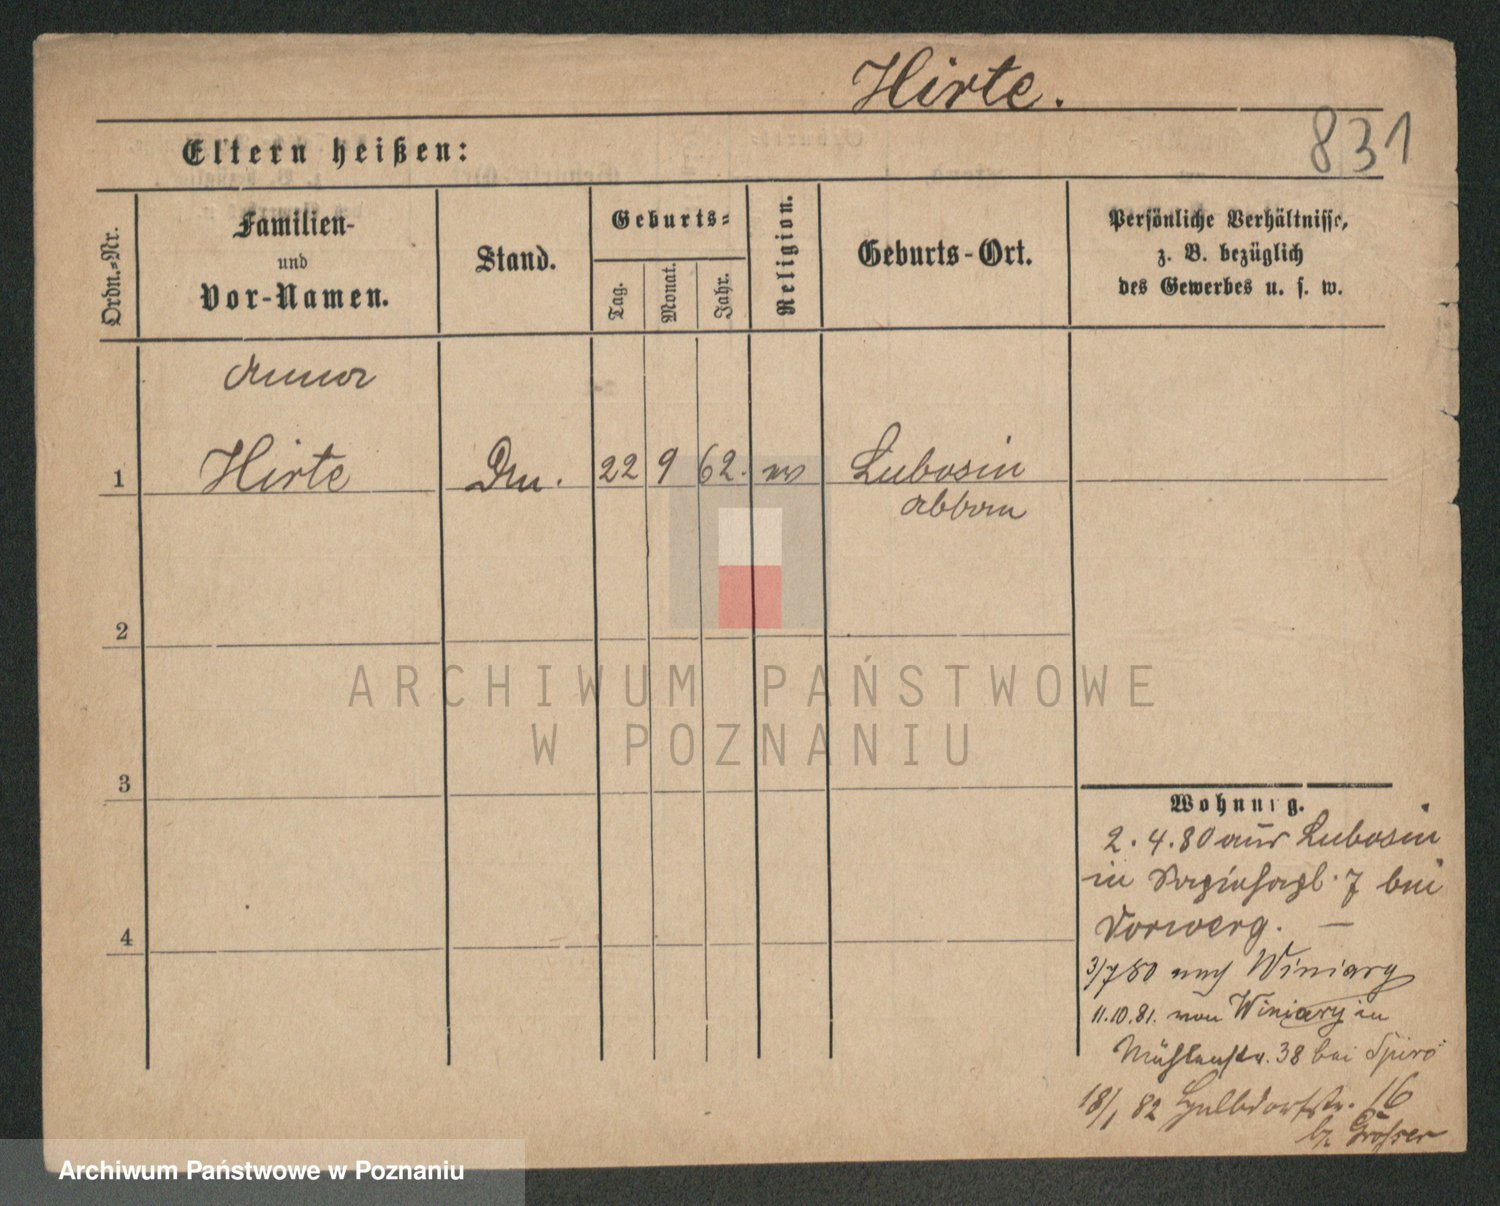 Hirte.
831
Eltern heißen:
Ordn.-Nr.
Familien-
und
Vor-Namen.
Stand.
Geburts-
Tag.
Monat.
Jahr.
Religion.
Geburts-Ort.
Persönliche Verhältnisse,
z. B. bezüglich
des Gewerbes u. s. w.
Anna
1 Hirte Dm. 22 9 62. Lubosin
2
3
4
ARCHIWUM PAŃSTWOWE
W POZNANIU
Wohnung.
2.4.80 aus Lubosin
in 7 bei
Vorwerg. —
3/7 80 nach Winiary
11.10.81. von Winiary in
Mühlenstr. 38 bei Spiro
18/1 82 Halbdorfstr. 16
b.
Archiwum Państwowe w Poznaniu